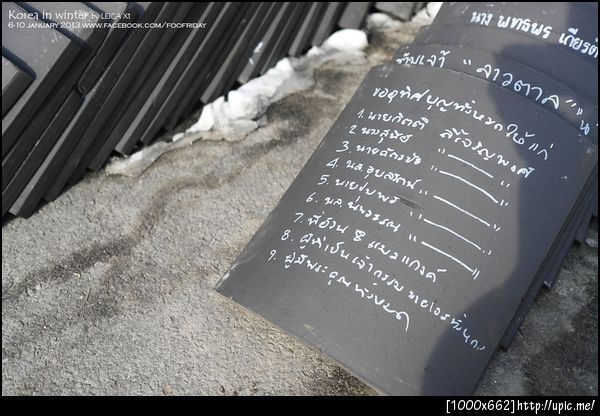 Korea in winter by LEICA X1
6-10 JANUARY 2013 WWW.FACEBOOK.COM/FOOFRIDAY
นาง พทธพร เกียรติ
ข้าพเจ้า " ลาวตาล "
ขออุทิศบุญทั้งหมดให้แก่
1. นายกิตติ ลี้เจริญพงศ์
2. นาง " "
3. นายฉัตรชัย " "
4. นส. อุบลรัตน์ " "
5. นายชุมพร " "
6. นส. " "
7. พี่อ้วน 8 แมวแกงค์
8. ผู้ที่เป็นเจ้ากรรมนายเวรทั้งหมด
9. ผู้มีพระคุณทั้งหมด
[1000x662]http://upic.me/